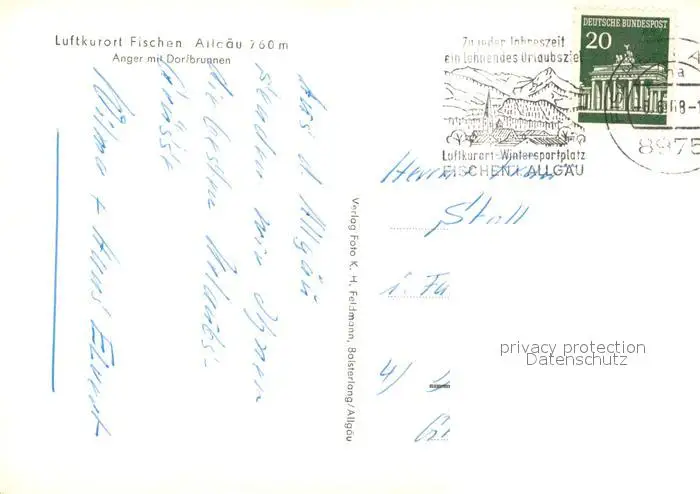 Luftkurort Fischen Allgäu 760 m
Anger mit Dorfbrunnen
Aus d. Allgäu
senden wir Ihnen
die besten Urlaubs-
grüsse
Verlag Foto K. H. Feldmann, Bolsterlang/Allgäu
Zu jeder Jahreszeit
ein lohnendes Urlaubsziel
Luftkurort-Wintersportplatz
FISCHEN I. ALLGÄU
DEUTSCHE BUNDESPOST
20
8975
Herrn
Stoll
i. Fa
4/
privacy protection
Datenschutz